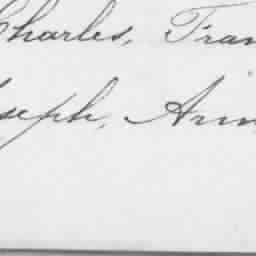 Charles, Fran
seph, Ann